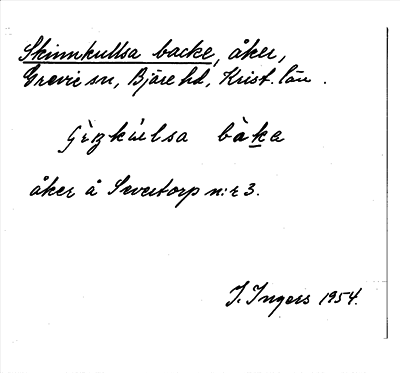 Skinnkullsa backe, åker,
Grevie sn, Bjäre hd, Krist. län.
bàka
åker å Sevetorp n:r 3.
I. Ingers 1954.